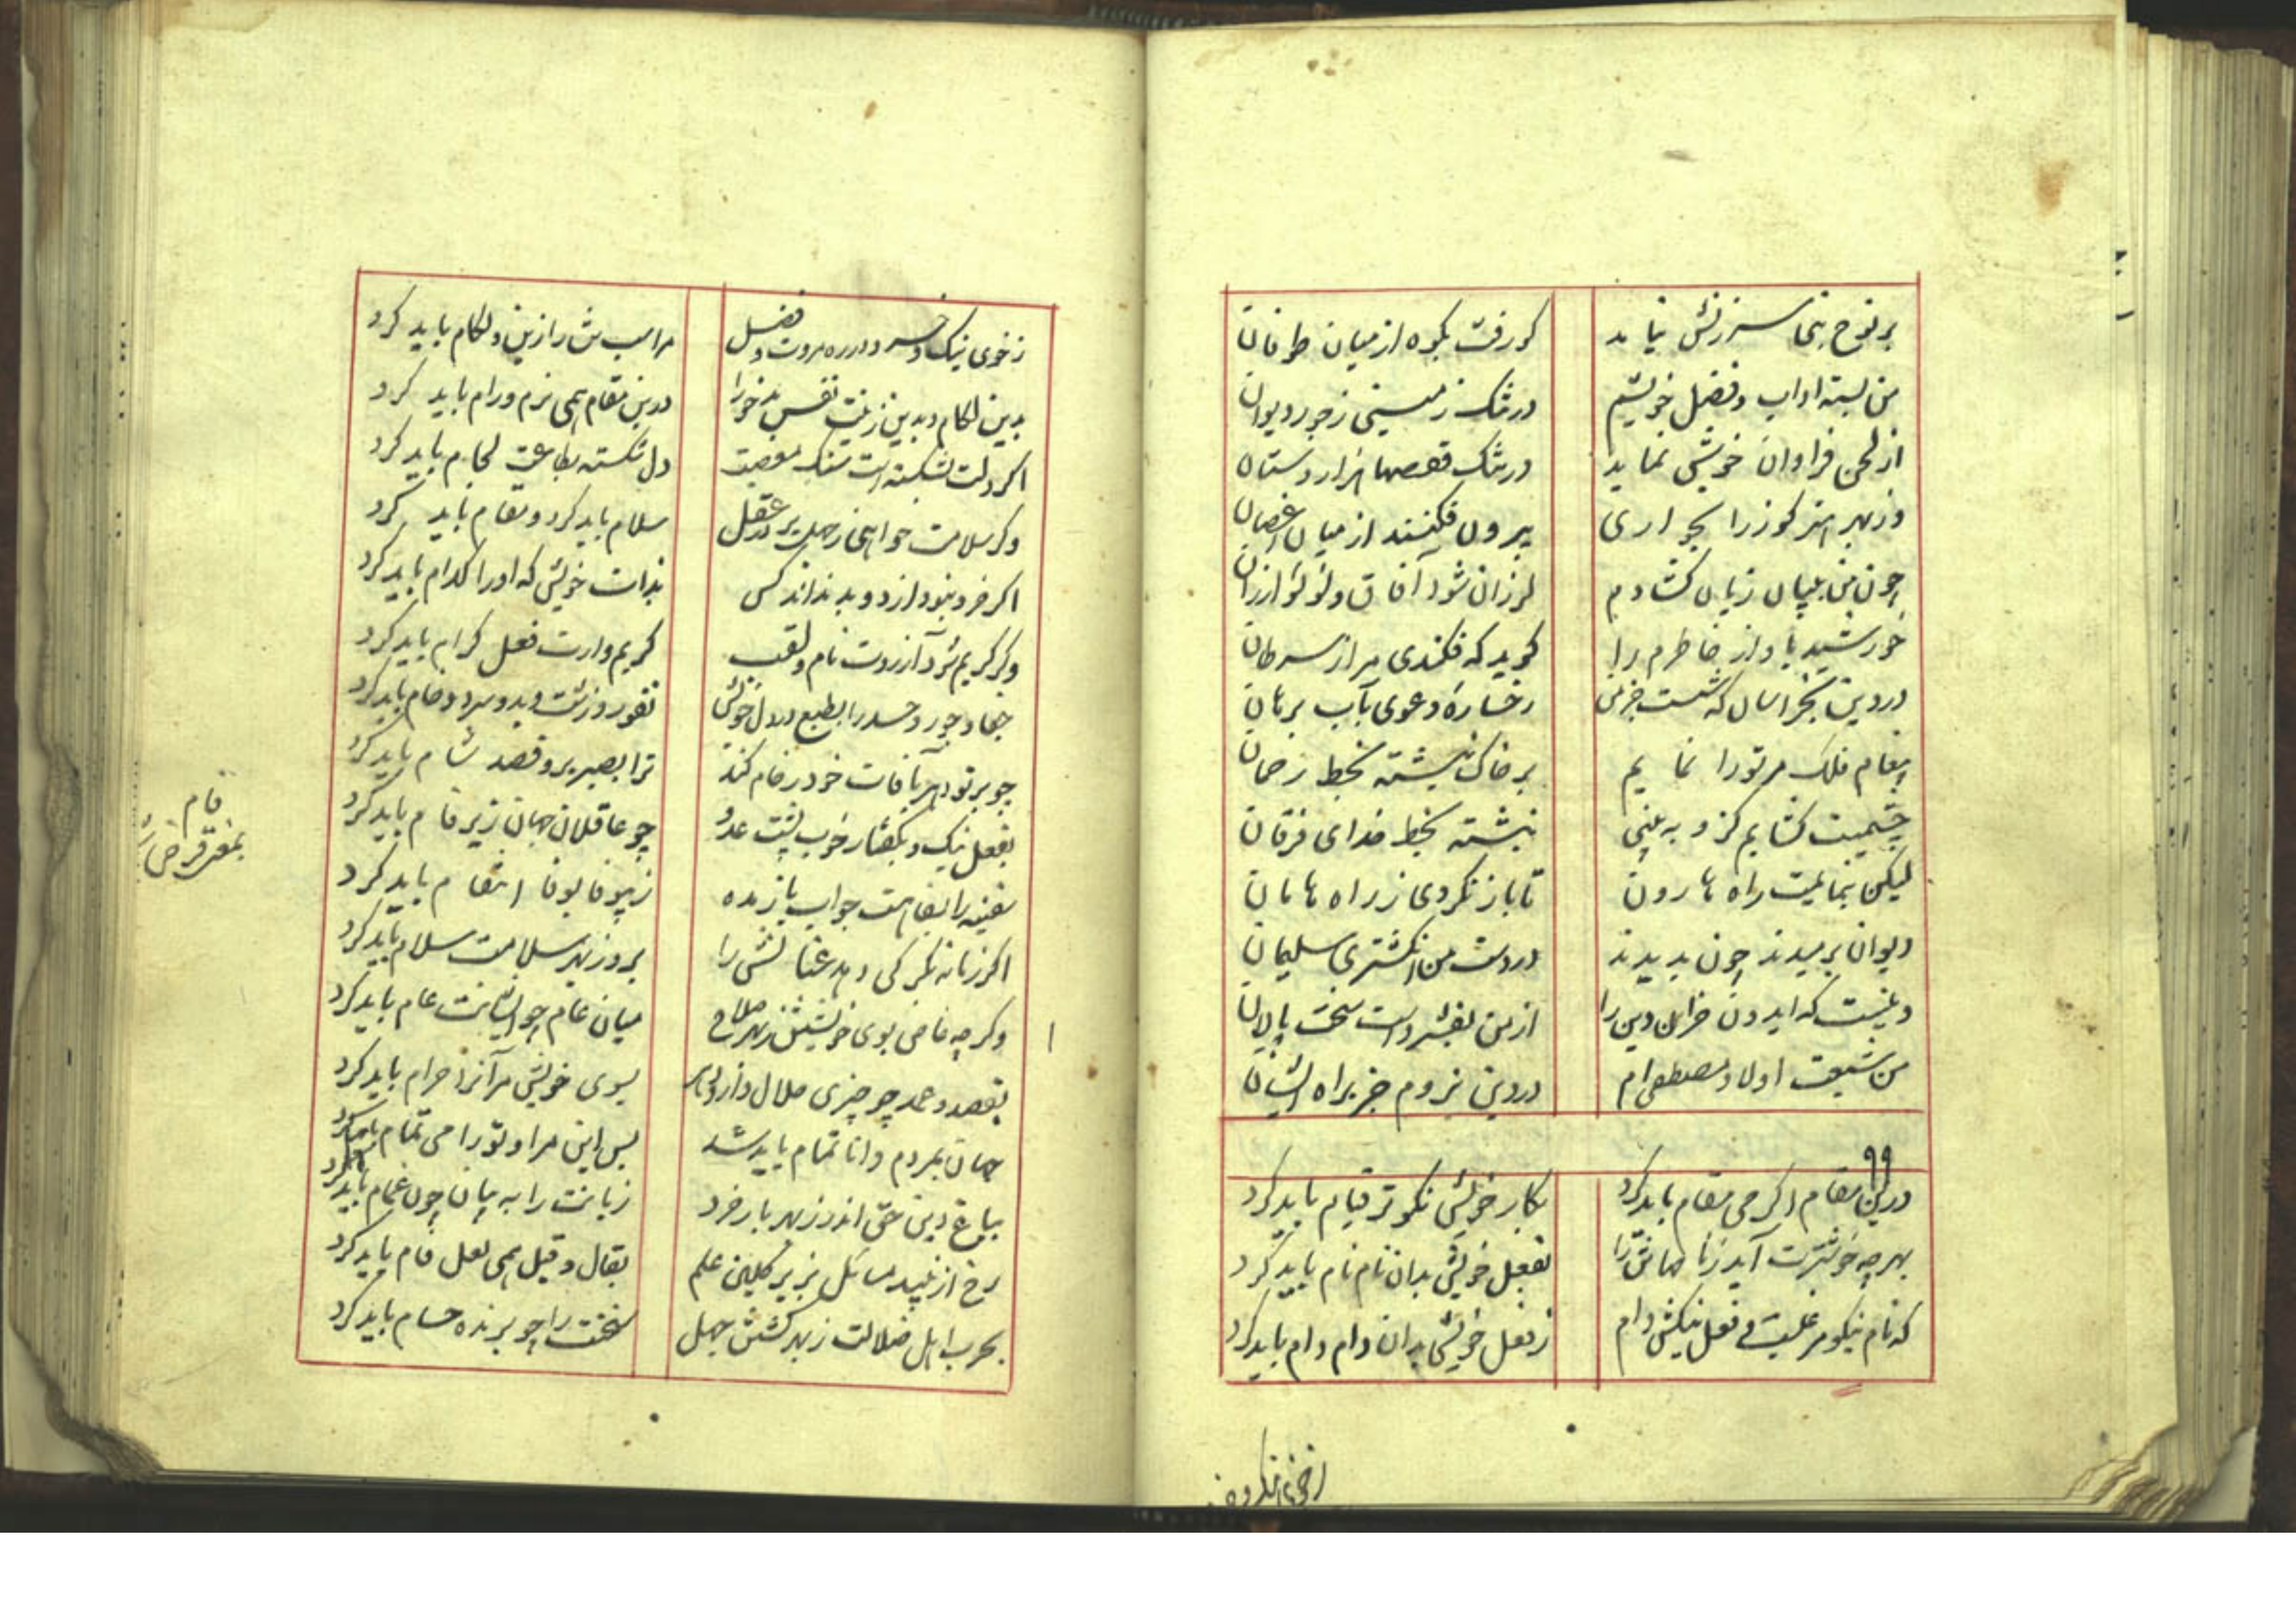 بر نوح نبی سرزنش نیاید کو رفت بکوه از میان طوفان
من بسته اداب و فضل خویشم در تنک زمینی ز جور دیوان
از لحن فراوان خوشی نماید در تنک قفصها هزار دستان
وز بهر هنر کوز را بخواری بیرون فکنند از میان اغصان
چون من ببیان زبان کشادم لرزان شود آفاق و لولو ارزان
خورشید باواز خاطرم را کوید که فکندی مرا ز سرطان
در دین بخراسان که شست جز من رخساره دعوی بآب برهان
پیغام فلک مر تو را نمایم بر خاک نبشته بخط رحمان
چشمیت کشایم کزو ببینی نبشته بخط خدای فرقان
لیکن ننمایمت راه هارون تا باز نکردی ز راه هامان
دیوان برمیدند چون بدیدند در دست من انکشتری سلیمان
وینست که ایدون خران دین را از من بفشرد است سخت پالان
من شیعت اولاد مصطفی ام در دین نروم جز براه ایشان
درین مقام اکر می مقام باید کرد بکار خویش نکوتر قیام باید کرد
بهر چه خوشترت آید ز نامها تن را بفعل خویش بدان نام نام باید کرد
که نام نیکو مرغیست و فعل نیکش دام ز فعل خویش بدان دام دام باید کرد
ز خوی نیک و خرد در ره مروت و فضل مر اسب تن را زین و لکام باید کرد
بدین لکام و بدین زینت نفس بد خو را درین مقام همی نرم و رام باید کرد
اکر دلت بشکسته است سنک معصیت دل شکسته بطاعت لحام باید کرد
وکر سلامت خواهی ز جهل بر در عقل سلام باید کرد و مقام باید کرد
اکر خرد نبود از دو بد نداند کس بذات خویش که او را کدام باید کرد
وکر کریم شود آرزوت نام و لقب کریم وارت فعل کرام باید کرد
جفا و جور و حسد را بطبع در دل خویش نفور و زشت و بد و سرد و خام باید کرد
چو بر تو دهر بآفات خود زحام کند ترا بصبر برو قصد شام باید کرد
بفعل نیک و بکفتار خوب پشت عدو چو عاقلان جهان زیر فام باید کرد
سفیه را بسفاهت جواب باز مده ز بیوفا بوفا انتقام باید کرد
اکر زمانه نکیرکی دهد عنانش را برو ز بهر سلامت سلام باید کرد
وکر چه خاص بوی خویشتن ز بهر صلاح میان عام چو ایشانت عام باید کرد
بقصد و عمد چو چیزی حلال دارد بر بسوی خویش مر آنرا حرام باید کرد
جهان بمردم دانا تمام باید شد پس این مرا و تو را می تمام باید کرد
بباغ دین حق اندر ز بهر بار خرد زبانت را به بیان چون غمام باید کرد
رخ از نبید مسائل بزیر کلبن علم بقال و قیل همی لعل فام باید کرد
بحرب اهل ضلالت ز بهر کشتن جهل سخنت را چو برنده حسام باید کرد
فام
بمعنی قرض است
ز خوی نیک و خرد